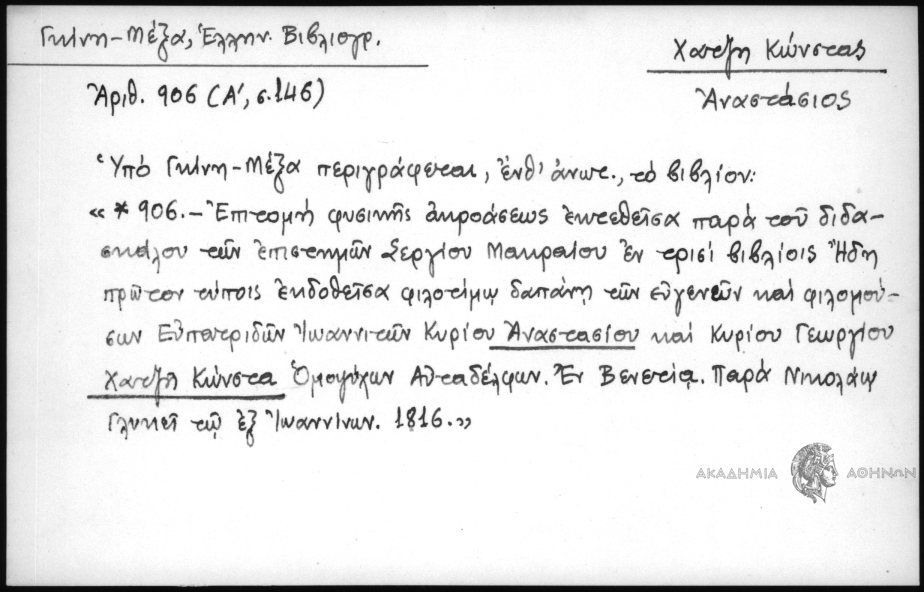 Γκίνη-Μέξα, Ἑλλην. Βιβλιογρ.
Χατζῆ Κώνστας
Ἀριθ. 906 (Α', σ.146)
Ἀναστάσιος
Ὑπό Γκίνη-Μέξα περιγράφεται, ἔνθ' ἀνωτ., τό βιβλίον:
« * 906.- Ἐπιτομή φυσικῆς ἀκροάσεως ἐκτεθεῖσα παρά τοῦ διδα-
σκάλου τῶν ἐπιστημῶν Σεργίου Μακραίου ἐν τρισί βιβλίοις Ἤδη
πρῶτον τύποις ἐκδοθεῖσα φιλοτίμῳ δαπάνῃ τῶν εὐγενῶν καί φιλομού-
σων Εὐπατριδῶν Ἰωαννιτῶν Κυρίου Ἀναστασίου καί Κυρίου Γεωργίου
Χατζῆ Κώνστα Ὁμοψύχων Αὐταδέλφων. Ἐν Βενετίᾳ. Παρά Νικολάῳ
Γλυκεῖ τῷ ἐξ Ἰωαννίνων. 1816.»
ΑΚΑΔΗΜΙΑ ΑΘΗΝΩΝ